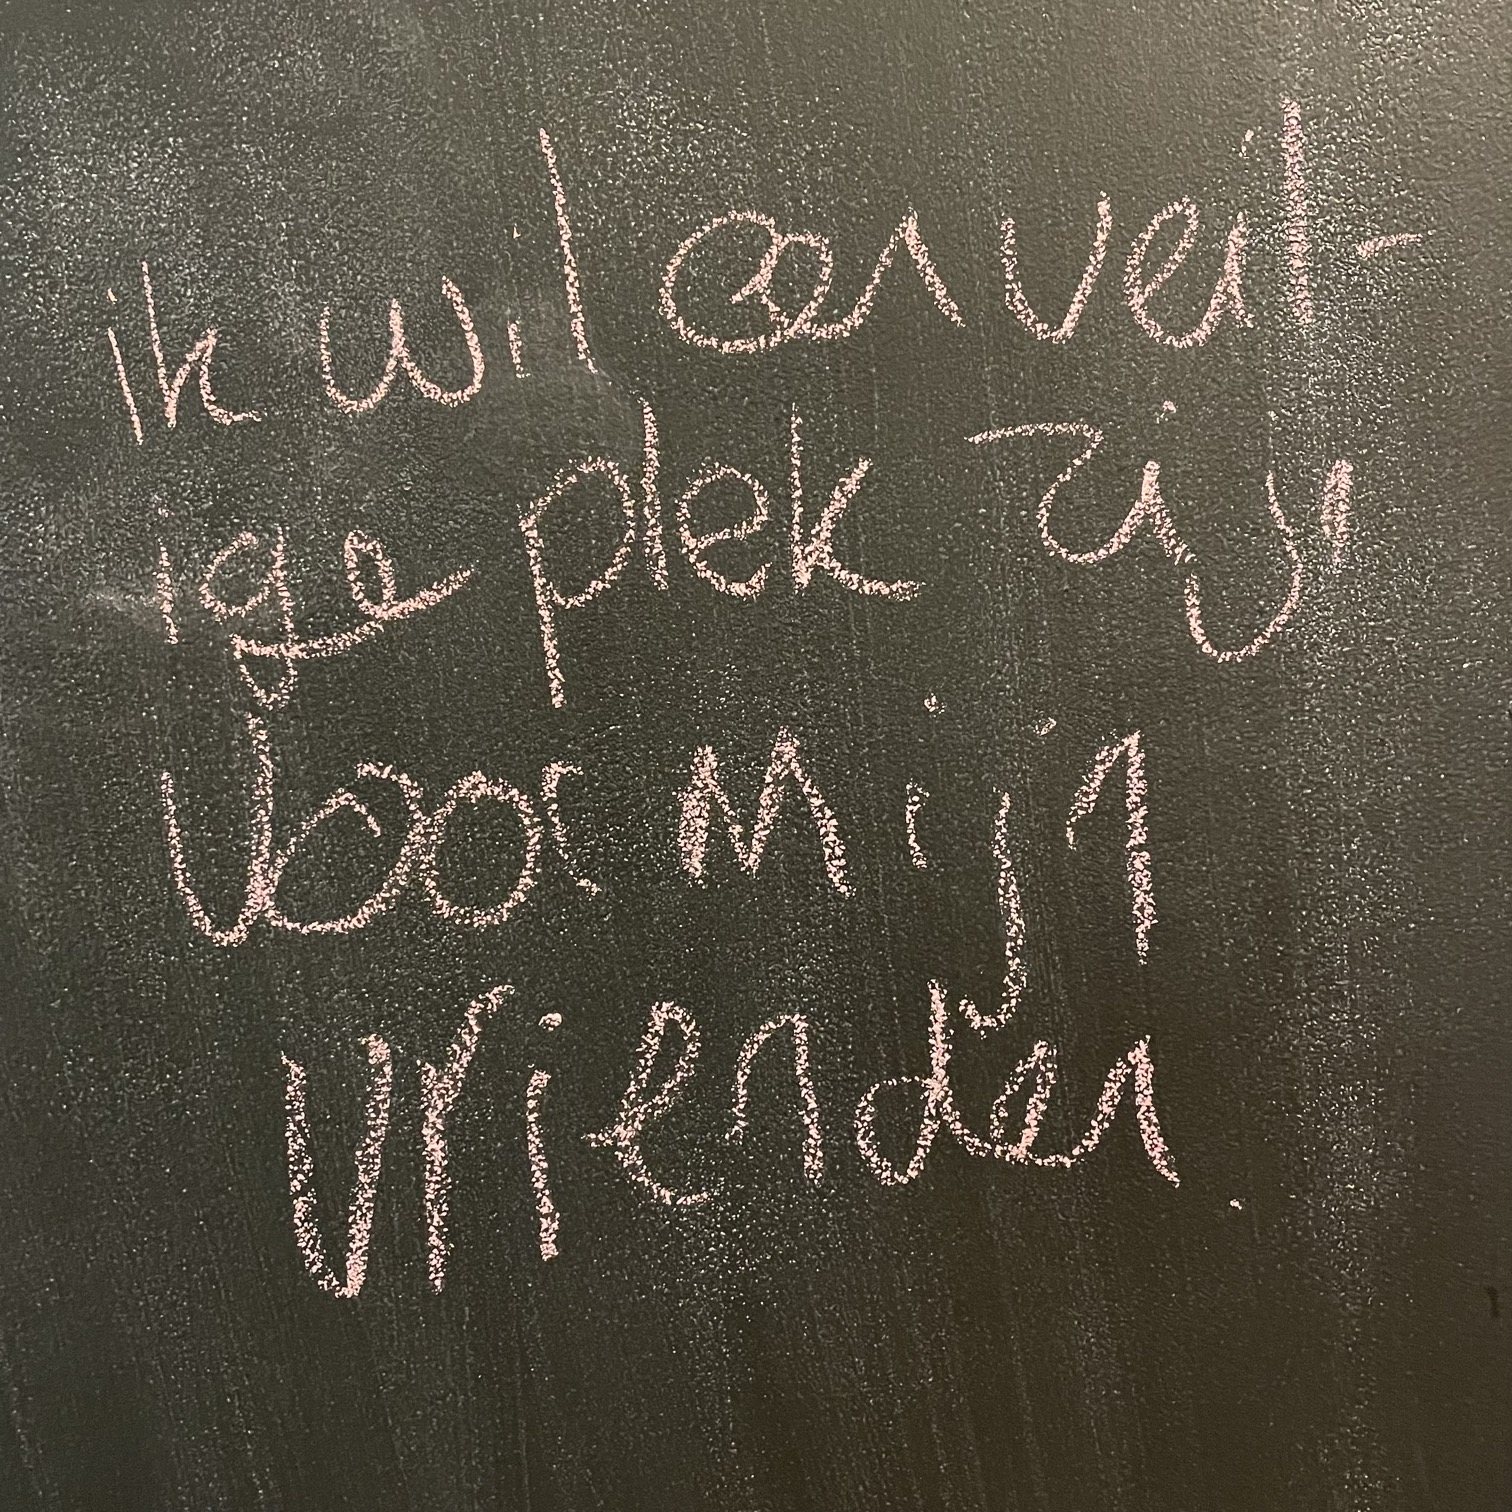 ik wil een veil-
ige plek zijn
voor mijn
vrienden.